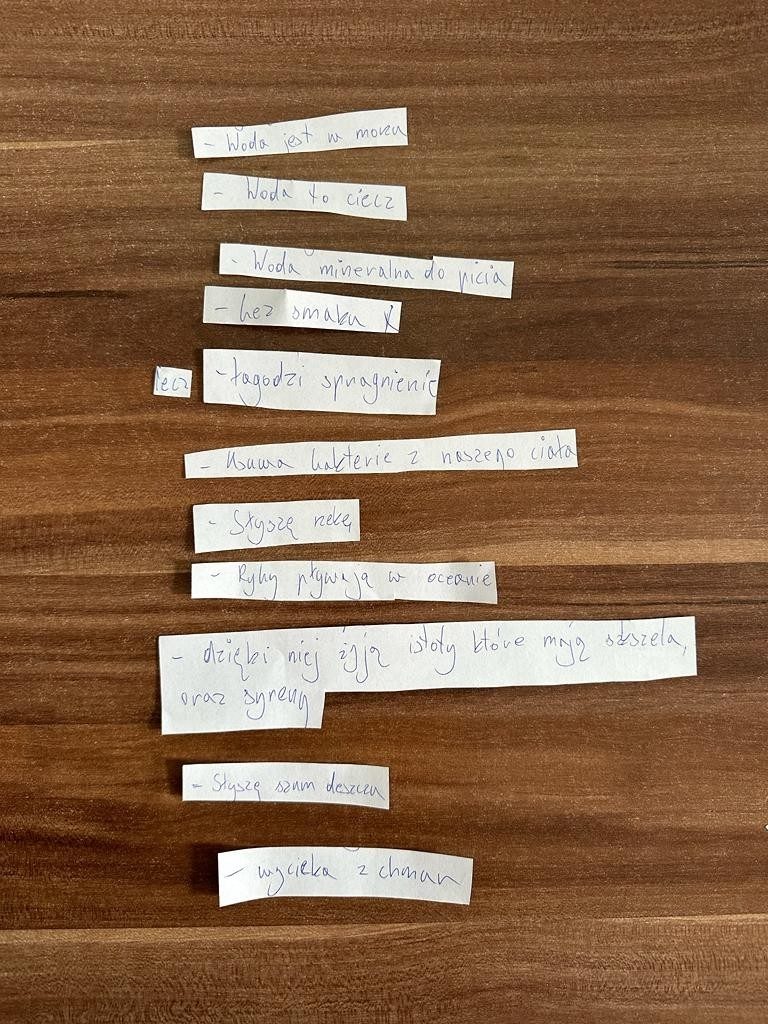 - Woda jest w morzu
- Woda to ciecz
- Woda mineralna do picia
- bez smaku X
lecz - łagodzi spragnienie
- Usuwa bakterie z naszego ciała
- Słyszę rzekę
- Ryby pływają w oceanie
- dzięki niej żyją istoty które mają skszela,
oraz syreny
- Słyszę szum deszczu
- wycieka z chmur